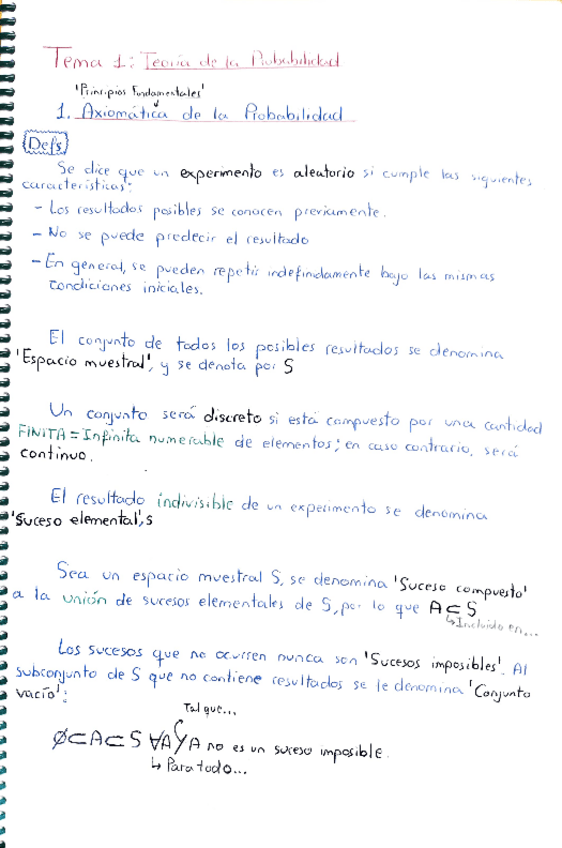 Tema 1: Teoría de la Probabilidad
'Principios Fundamentales'
1. Axiomática de la Probabilidad
Defs
Se dice que un experimento es aleatorio si cumple las siguientes
características:
- Los resultados posibles se conocen previamente.
- No se puede predecir el resultado
- En general, se pueden repetir indefinidamente bajo las mismas
condiciones iniciales.
El conjunto de todos los posibles resultados se denomina
'Espacio muestral', y se denota por S
Un conjunto será discreto si está compuesto por una cantidad
FINITA = Infinita numerable de elementos; en caso contrario, será
continuo.
El resultado indivisible de un experimento se denomina
'Suceso elemental', s
Sea un espacio muestral S, se denomina 'Suceso compuesto'
a la unión de sucesos elementales de S, por lo que A⊂S
↳Incluido en...
Los sucesos que no ocurren nunca son 'Sucesos imposibles'. Al
subconjunto de S que no contiene resultados se le denomina 'Conjunto
vacío':
Tal que...
∅⊂A⊂S ∀A/A no es un suceso imposible.
↳ Para todo...